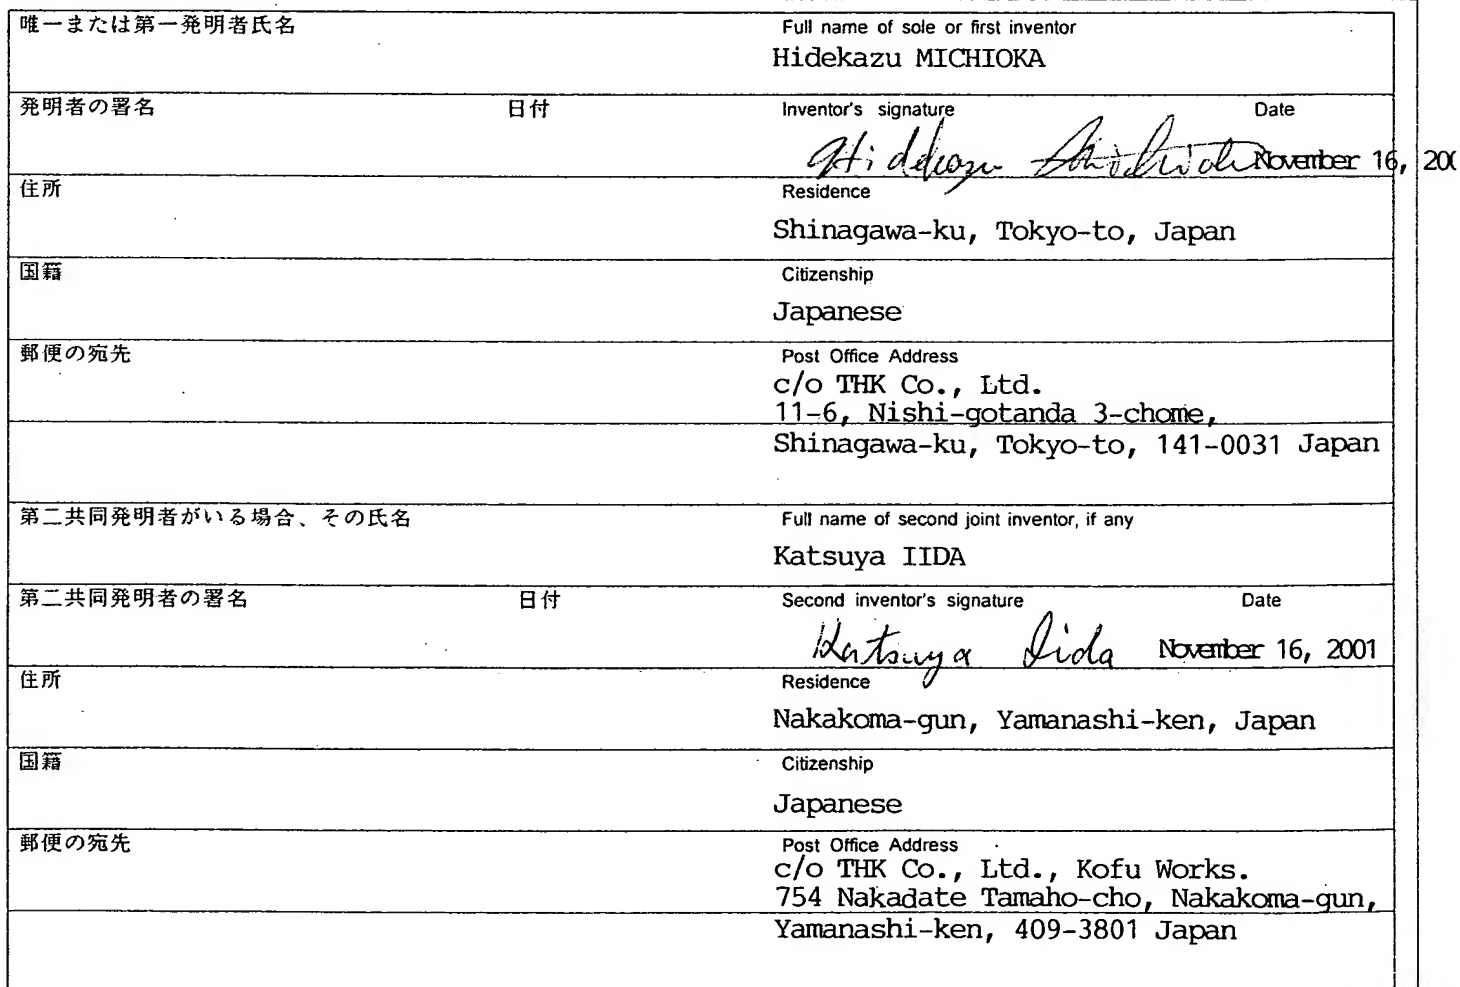 唯一または第一発明者氏名 Full name of sole or first inventor
Hidekazu MICHIOKA
発明者の署名 日付 Inventor's signature Date
Hidekazu Michioka November 16, 200
住所 Residence
Shinagawa-ku, Tokyo-to, Japan
国籍 Citizenship
Japanese
郵便の宛先 Post Office Address
c/o THK Co., Ltd.
11-6, Nishi-gotanda 3-chome,
Shinagawa-ku, Tokyo-to, 141-0031 Japan
第二共同発明者がいる場合、その氏名 Full name of second joint inventor, if any
Katsuya IIDA
第二共同発明者の署名 日付 Second inventor's signature Date
Katsuya Iida November 16, 2001
住所 Residence
Nakakoma-gun, Yamanashi-ken, Japan
国籍 Citizenship
Japanese
郵便の宛先 Post Office Address
c/o THK Co., Ltd., Kofu Works.
754 Nakadate Tamaho-cho, Nakakoma-gun,
Yamanashi-ken, 409-3801 Japan